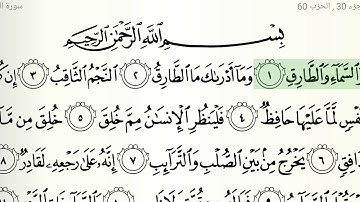 جزء 30 , الحزب 60
بِسْمِ ٱللَّهِ ٱلرَّحْمَٰنِ ٱلرَّحِيمِ
وَٱلسَّمَآءِ وَٱلطَّارِقِ ١ وَمَآ أَدْرَىٰكَ مَا ٱلطَّارِقُ ٢ ٱلنَّجْمُ ٱلثَّاقِبُ ٣ إِن
نَفْسٍ لَّمَّا عَلَيْهَا حَافِظٌ ٤ فَلْيَنظُرِ ٱلْإِنسَٰنُ مِمَّ خُلِقَ ٥ خُلِقَ مِن
دَافِقٍ ٦ يَخْرُجُ مِنۢ بَيْنِ ٱلصُّلْبِ وَٱلتَّرَآئِبِ ٧ إِنَّهُۥ عَلَىٰ رَجْعِهِۦ لَقَادِرٌ ٨